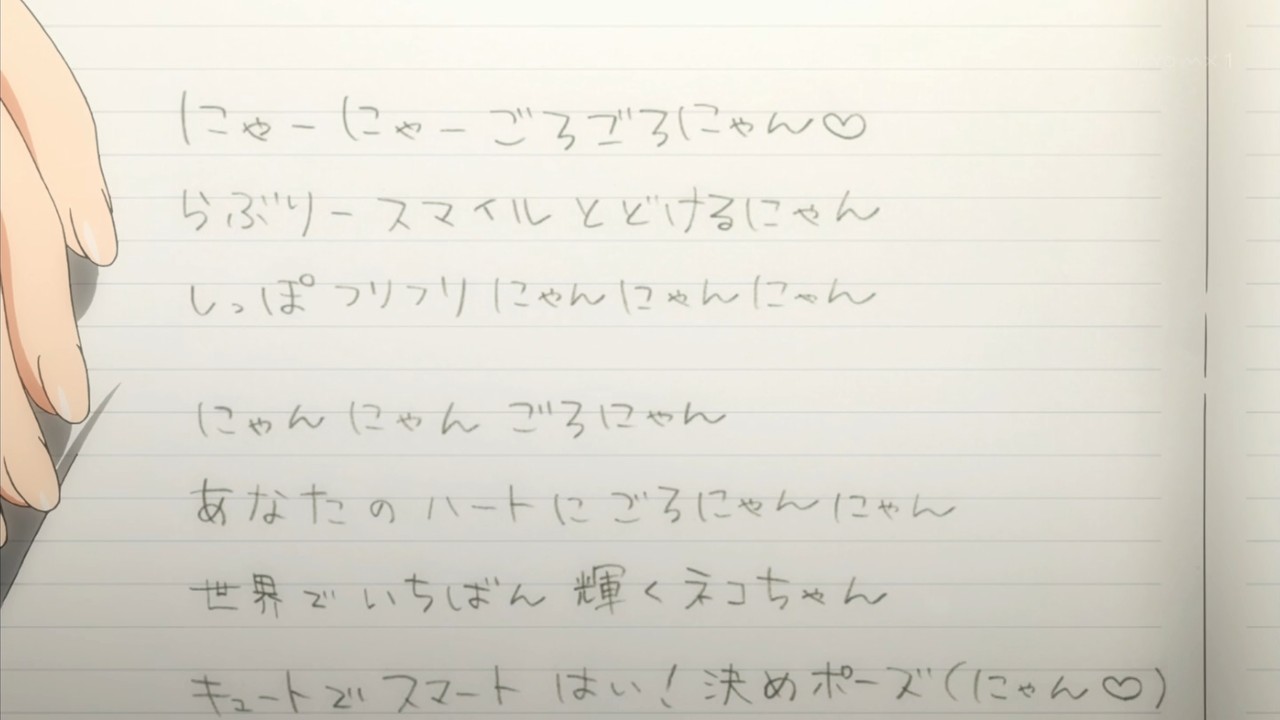 にゃーにゃーごろごろにゃん♡
らぶりースマイルとどけるにゃん
しっぽフリフリにゃんにゃんにゃん
にゃんにゃんごろにゃん
あなたのハートにごろにゃんにゃん
世界でいちばん輝くネコちゃん
キュートでスマートはい！決めポーズ(にゃん♡)